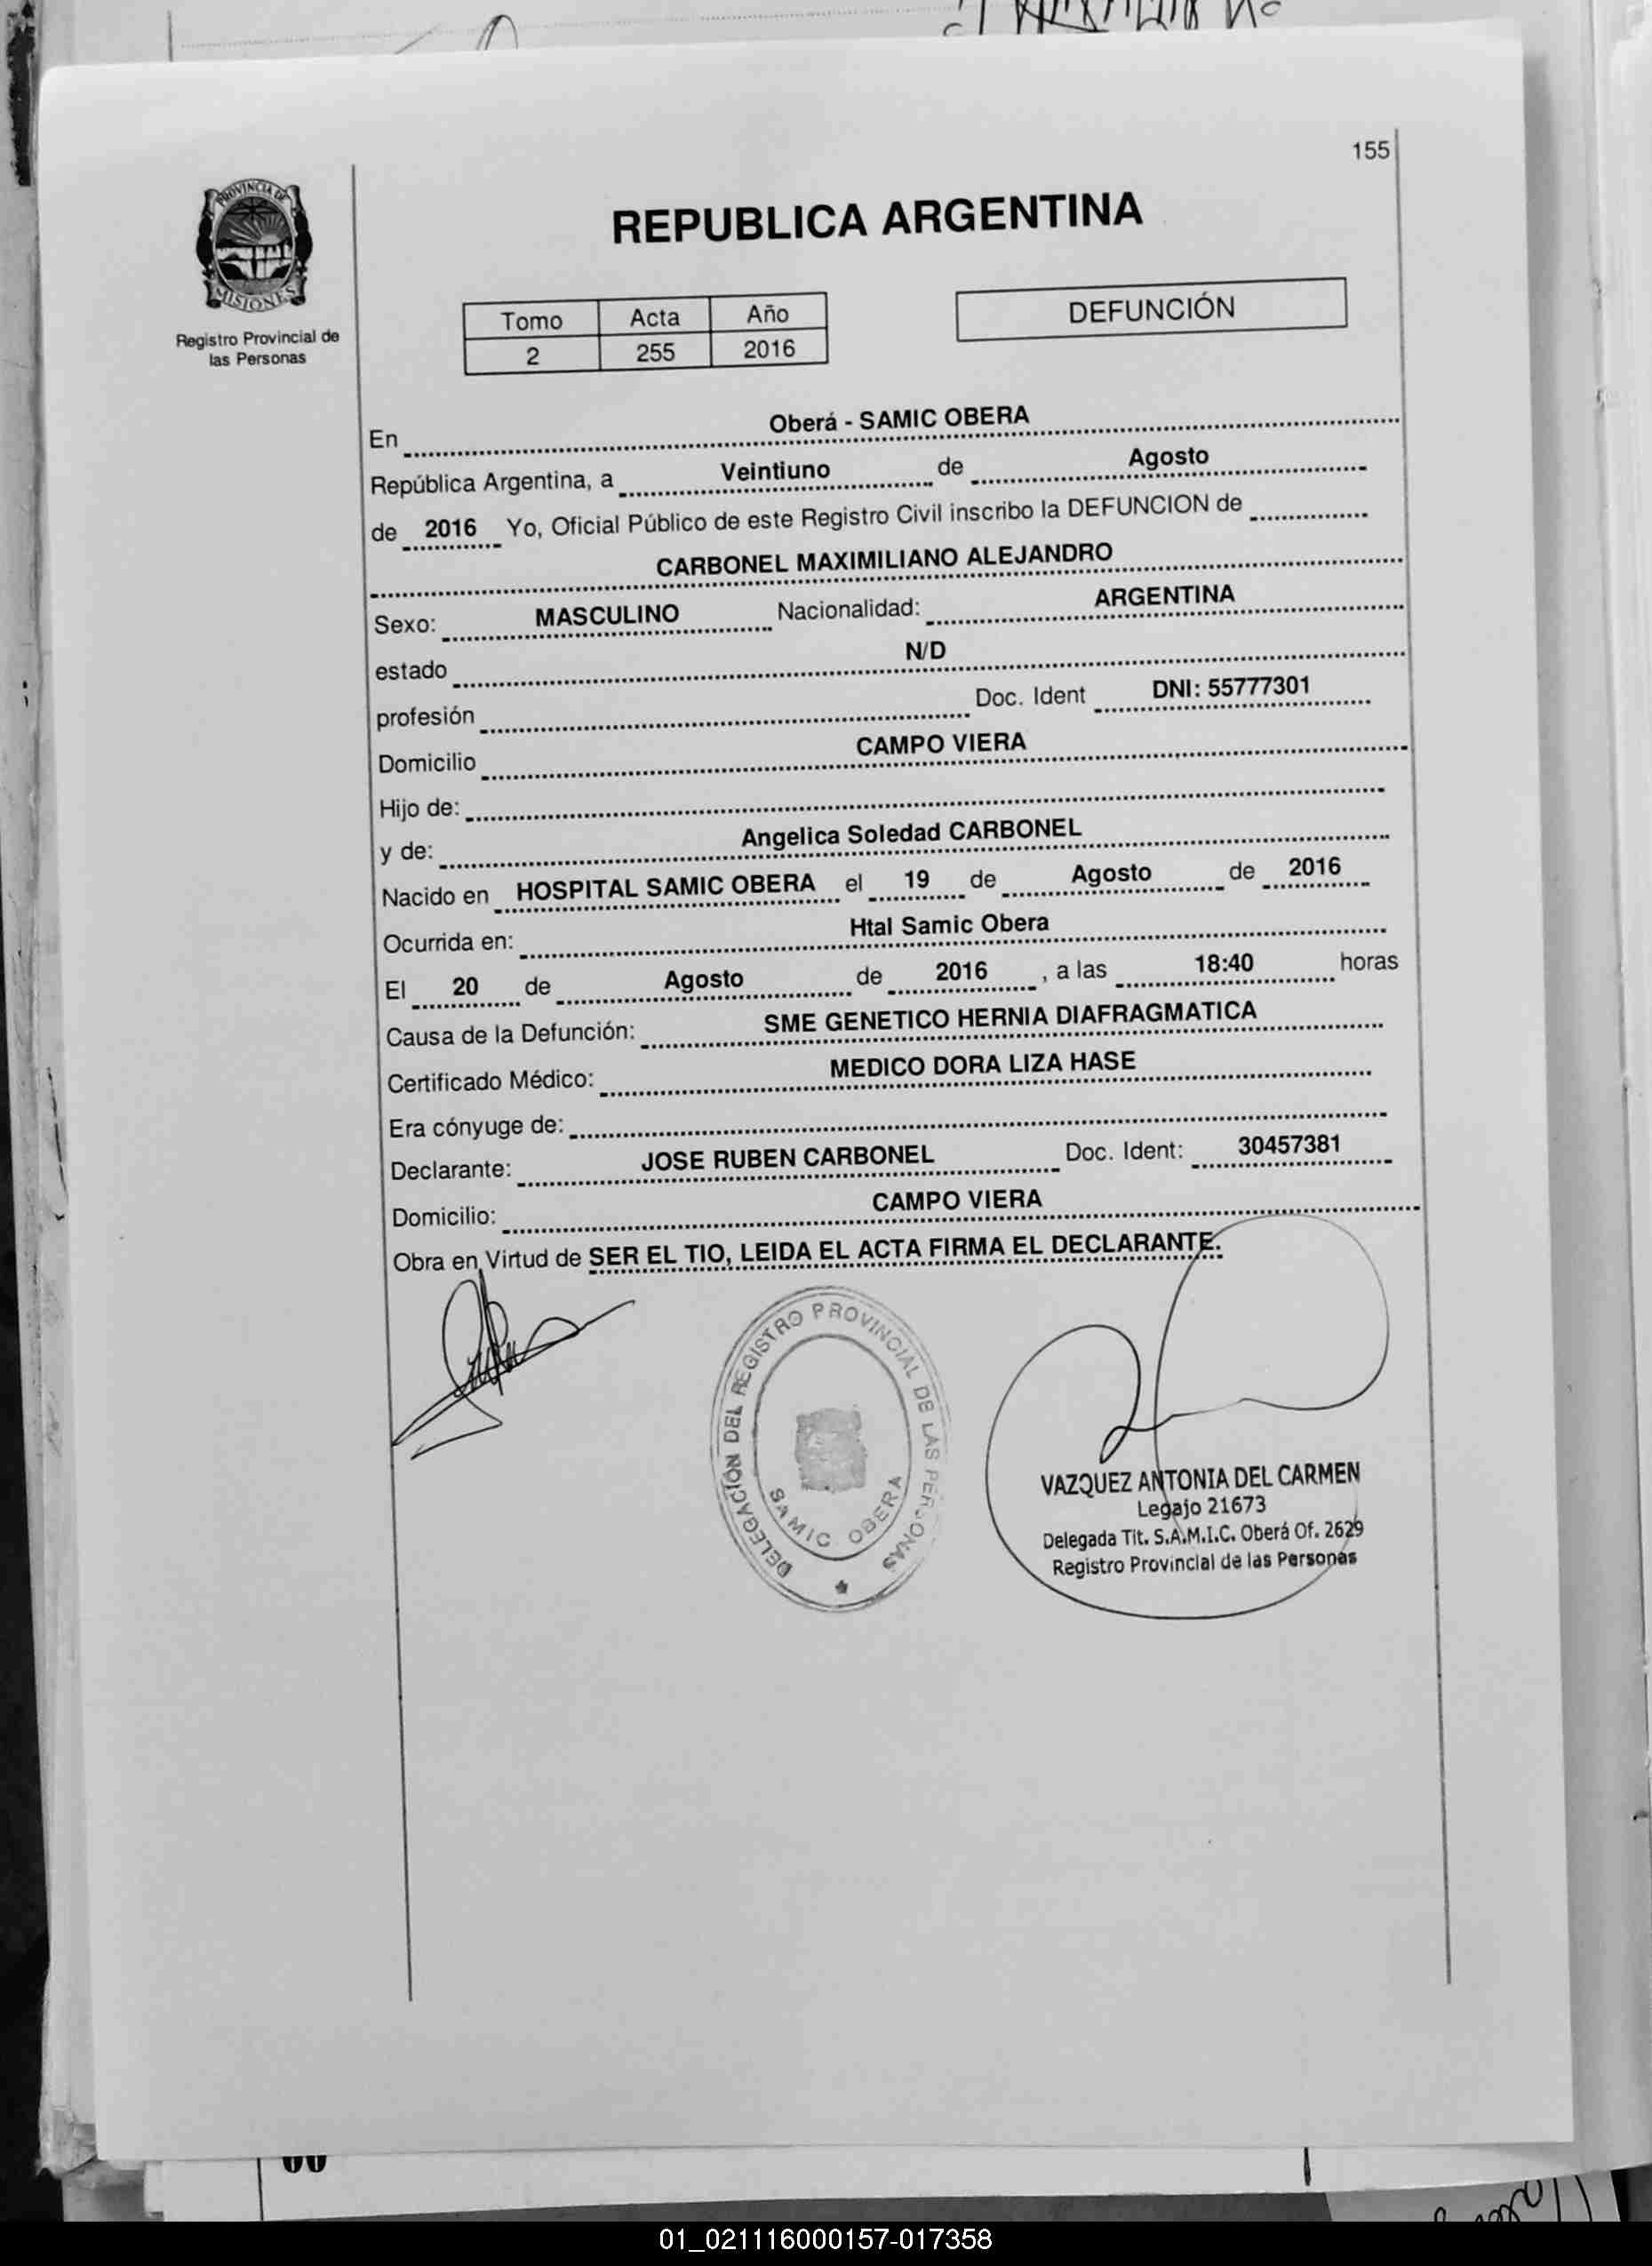 155
PROVINCIA DE
MISIONES
Registro Provincial de
las Personas
REPUBLICA ARGENTINA
Tomo Acta Año
2 255 2016
DEFUNCIÓN
En Oberá - SAMIC OBERA
República Argentina, a Veintiuno de Agosto
de 2016 Yo, Oficial Público de este Registro Civil inscribo la DEFUNCION de
CARBONEL MAXIMILIANO ALEJANDRO
Sexo: MASCULINO Nacionalidad: ARGENTINA
estado N/D
profesión Doc. Ident DNI: 55777301
Domicilio CAMPO VIERA
Hijo de:
y de: Angelica Soledad CARBONEL
Nacido en HOSPITAL SAMIC OBERA el 19 de Agosto de 2016
Ocurrida en: Htal Samic Obera
El 20 de Agosto de 2016 , a las 18:40 horas
Causa de la Defunción: SME GENETICO HERNIA DIAFRAGMATICA
Certificado Médico: MEDICO DORA LIZA HASE
Era cónyuge de:
Declarante: JOSE RUBEN CARBONEL Doc. Ident: 30457381
Domicilio: CAMPO VIERA
Obra en Virtud de SER EL TIO, LEIDA EL ACTA FIRMA EL DECLARANTE.
DELEGACIÓN DEL REGISTRO PROVINCIAL DE LAS PERSONAS
SAMIC OBERA
VAZQUEZ ANTONIA DEL CARMEN
Legajo 21673
Delegada Tit. S.A.M.I.C. Oberá Of. 2629
Registro Provincial de las Personas
01_021116000157-017358